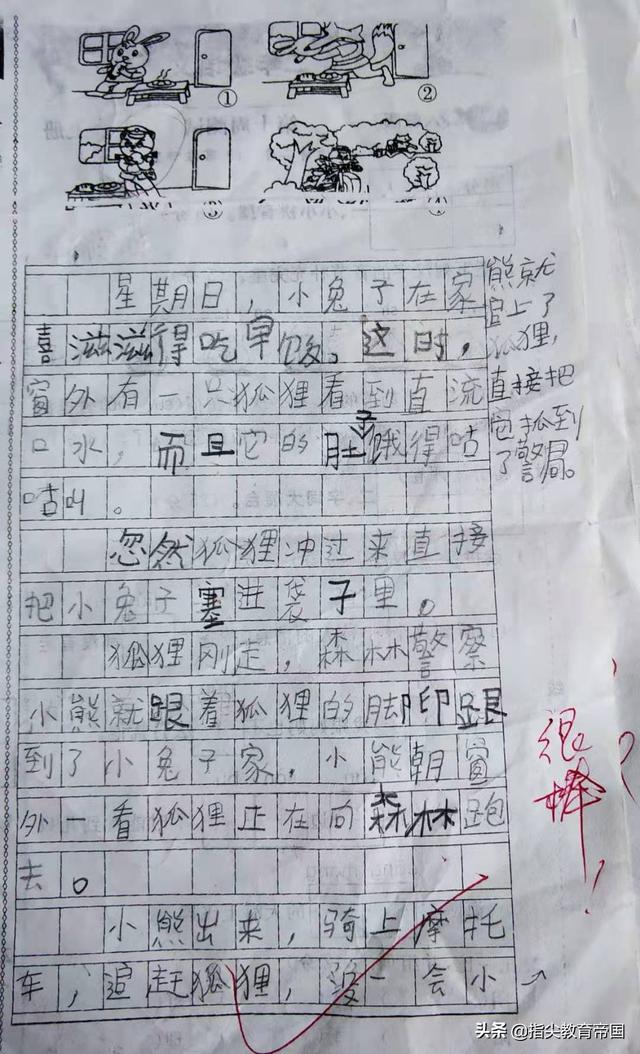 ①
②
③
星期日，小兔子在家
喜滋滋得吃早饭。这时，
窗外有一只狐狸看到直流
口水，而且它的肚子饿得咕
咕叫。
忽然狐狸冲过来直接
把小兔子塞进袋子里。
狐狸刚走，森林警察
小熊就跟着狐狸的脚印跟
到了小兔子家，小熊朝窗
外一看狐狸正在向森林跑
去。
小熊出来，骑上摩托
车，追赶狐狸，没一会小
熊就
追上了
狐狸，
直接把
它抓到
了警局。
很
棒！
头条 @指尖教育帝国